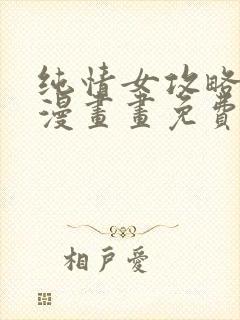 纯情女攻略
漫畫畫免費
相戶愛